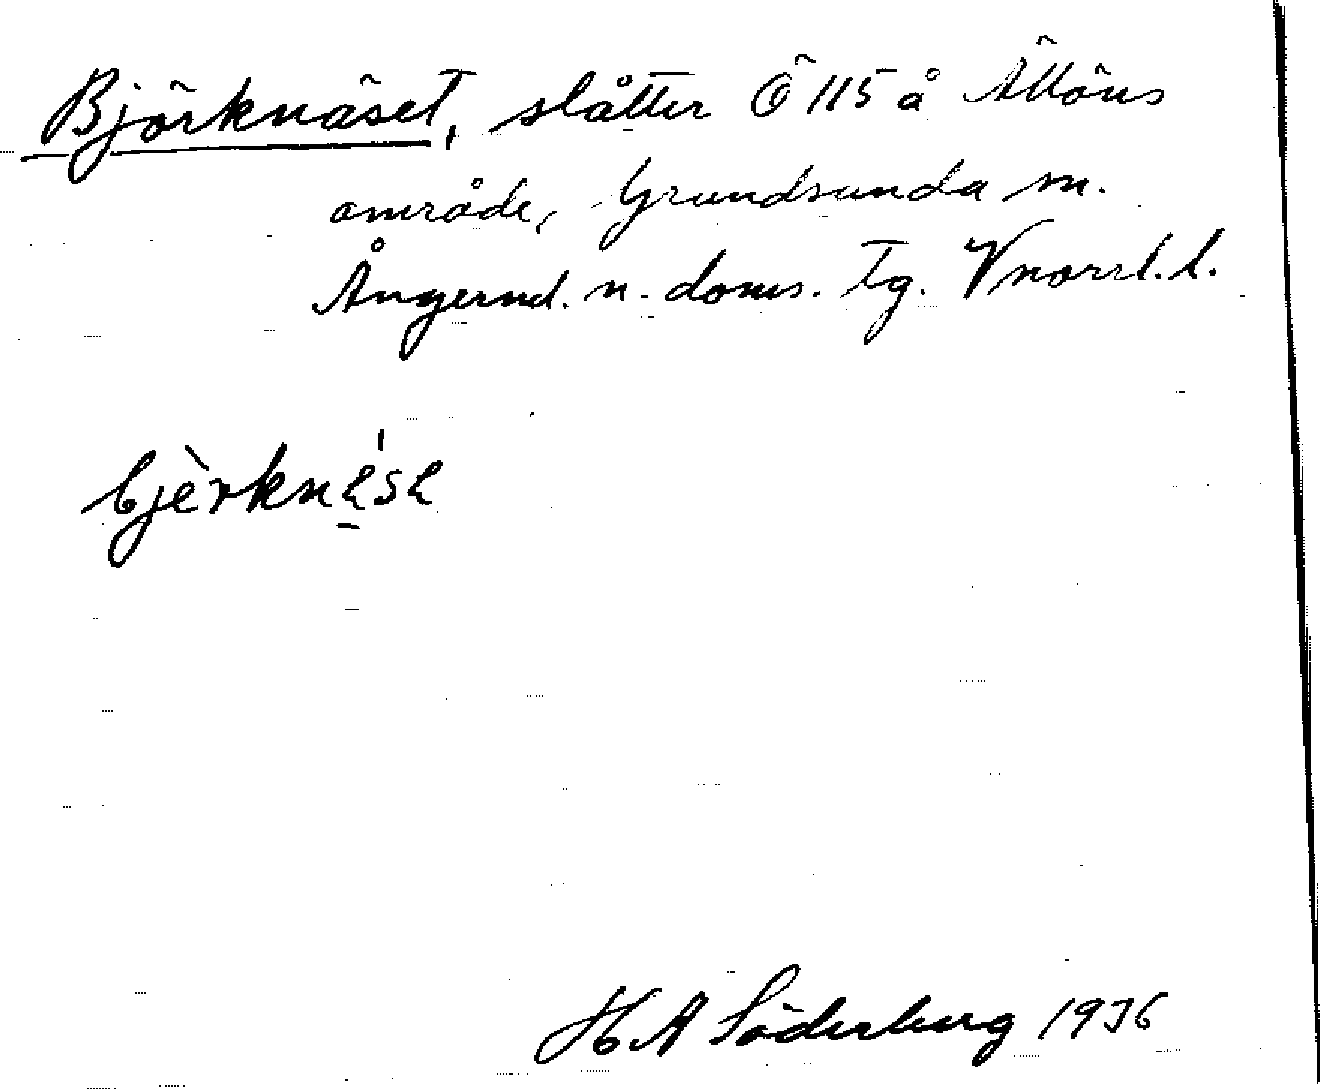 Björknäset, slåtter Ö 115 å Ällöns
område, Grundsunda sn.
Ångermd. n. doms. tg. Vnorrl. l.
bjèrknése
H A Söderberg 1936